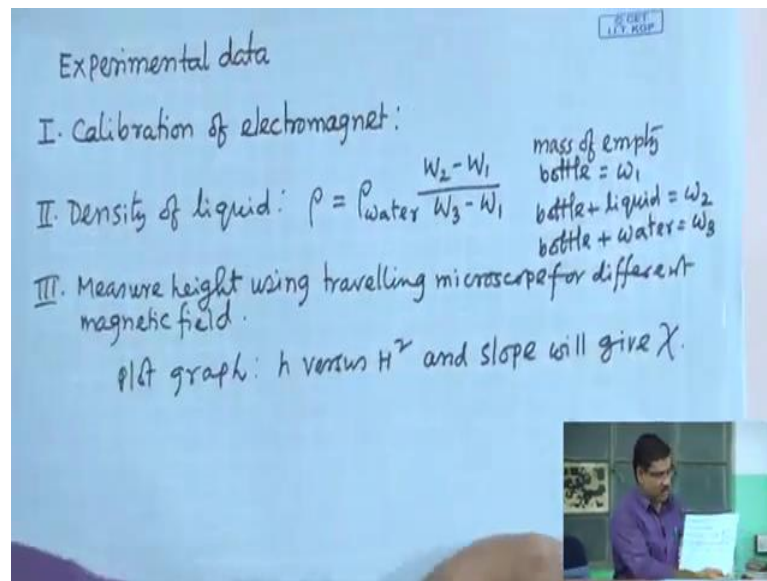 © CET
I.I.T. KGP
Experimental data
I. Calibration of electromagnet:
II. Density of liquid: ρ = ρwater (W2 - W1) / (W3 - W1)
mass of empty
bottle = ω1
bottle + liquid = ω2
bottle + water = ω3
III. Measure height using travelling microscope for different
magnetic field.
Plot graph: h versus H² and slope will give χ.